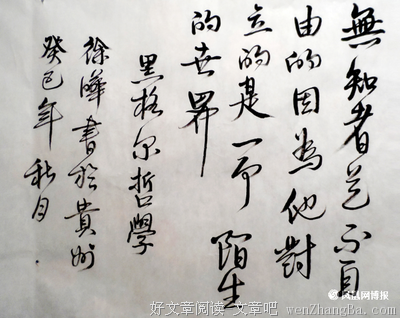 無知者是不自
由的因為他對
立的是一个陌生
的世界
黑格尔哲學
徐曄書於貴州
癸巳年秋月
凤凰网博报
好文章阅读-文章吧
wenZhangBa.com